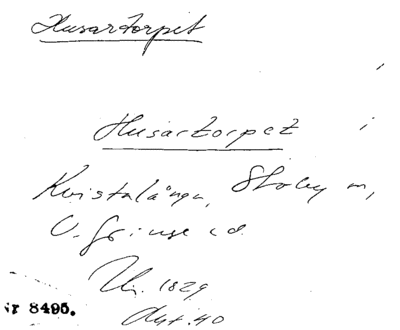 Husartorpet
Husartorpet i
Kvistalånga, Stoby sn,
V. Göinge hd.
1829
Nr 8495.